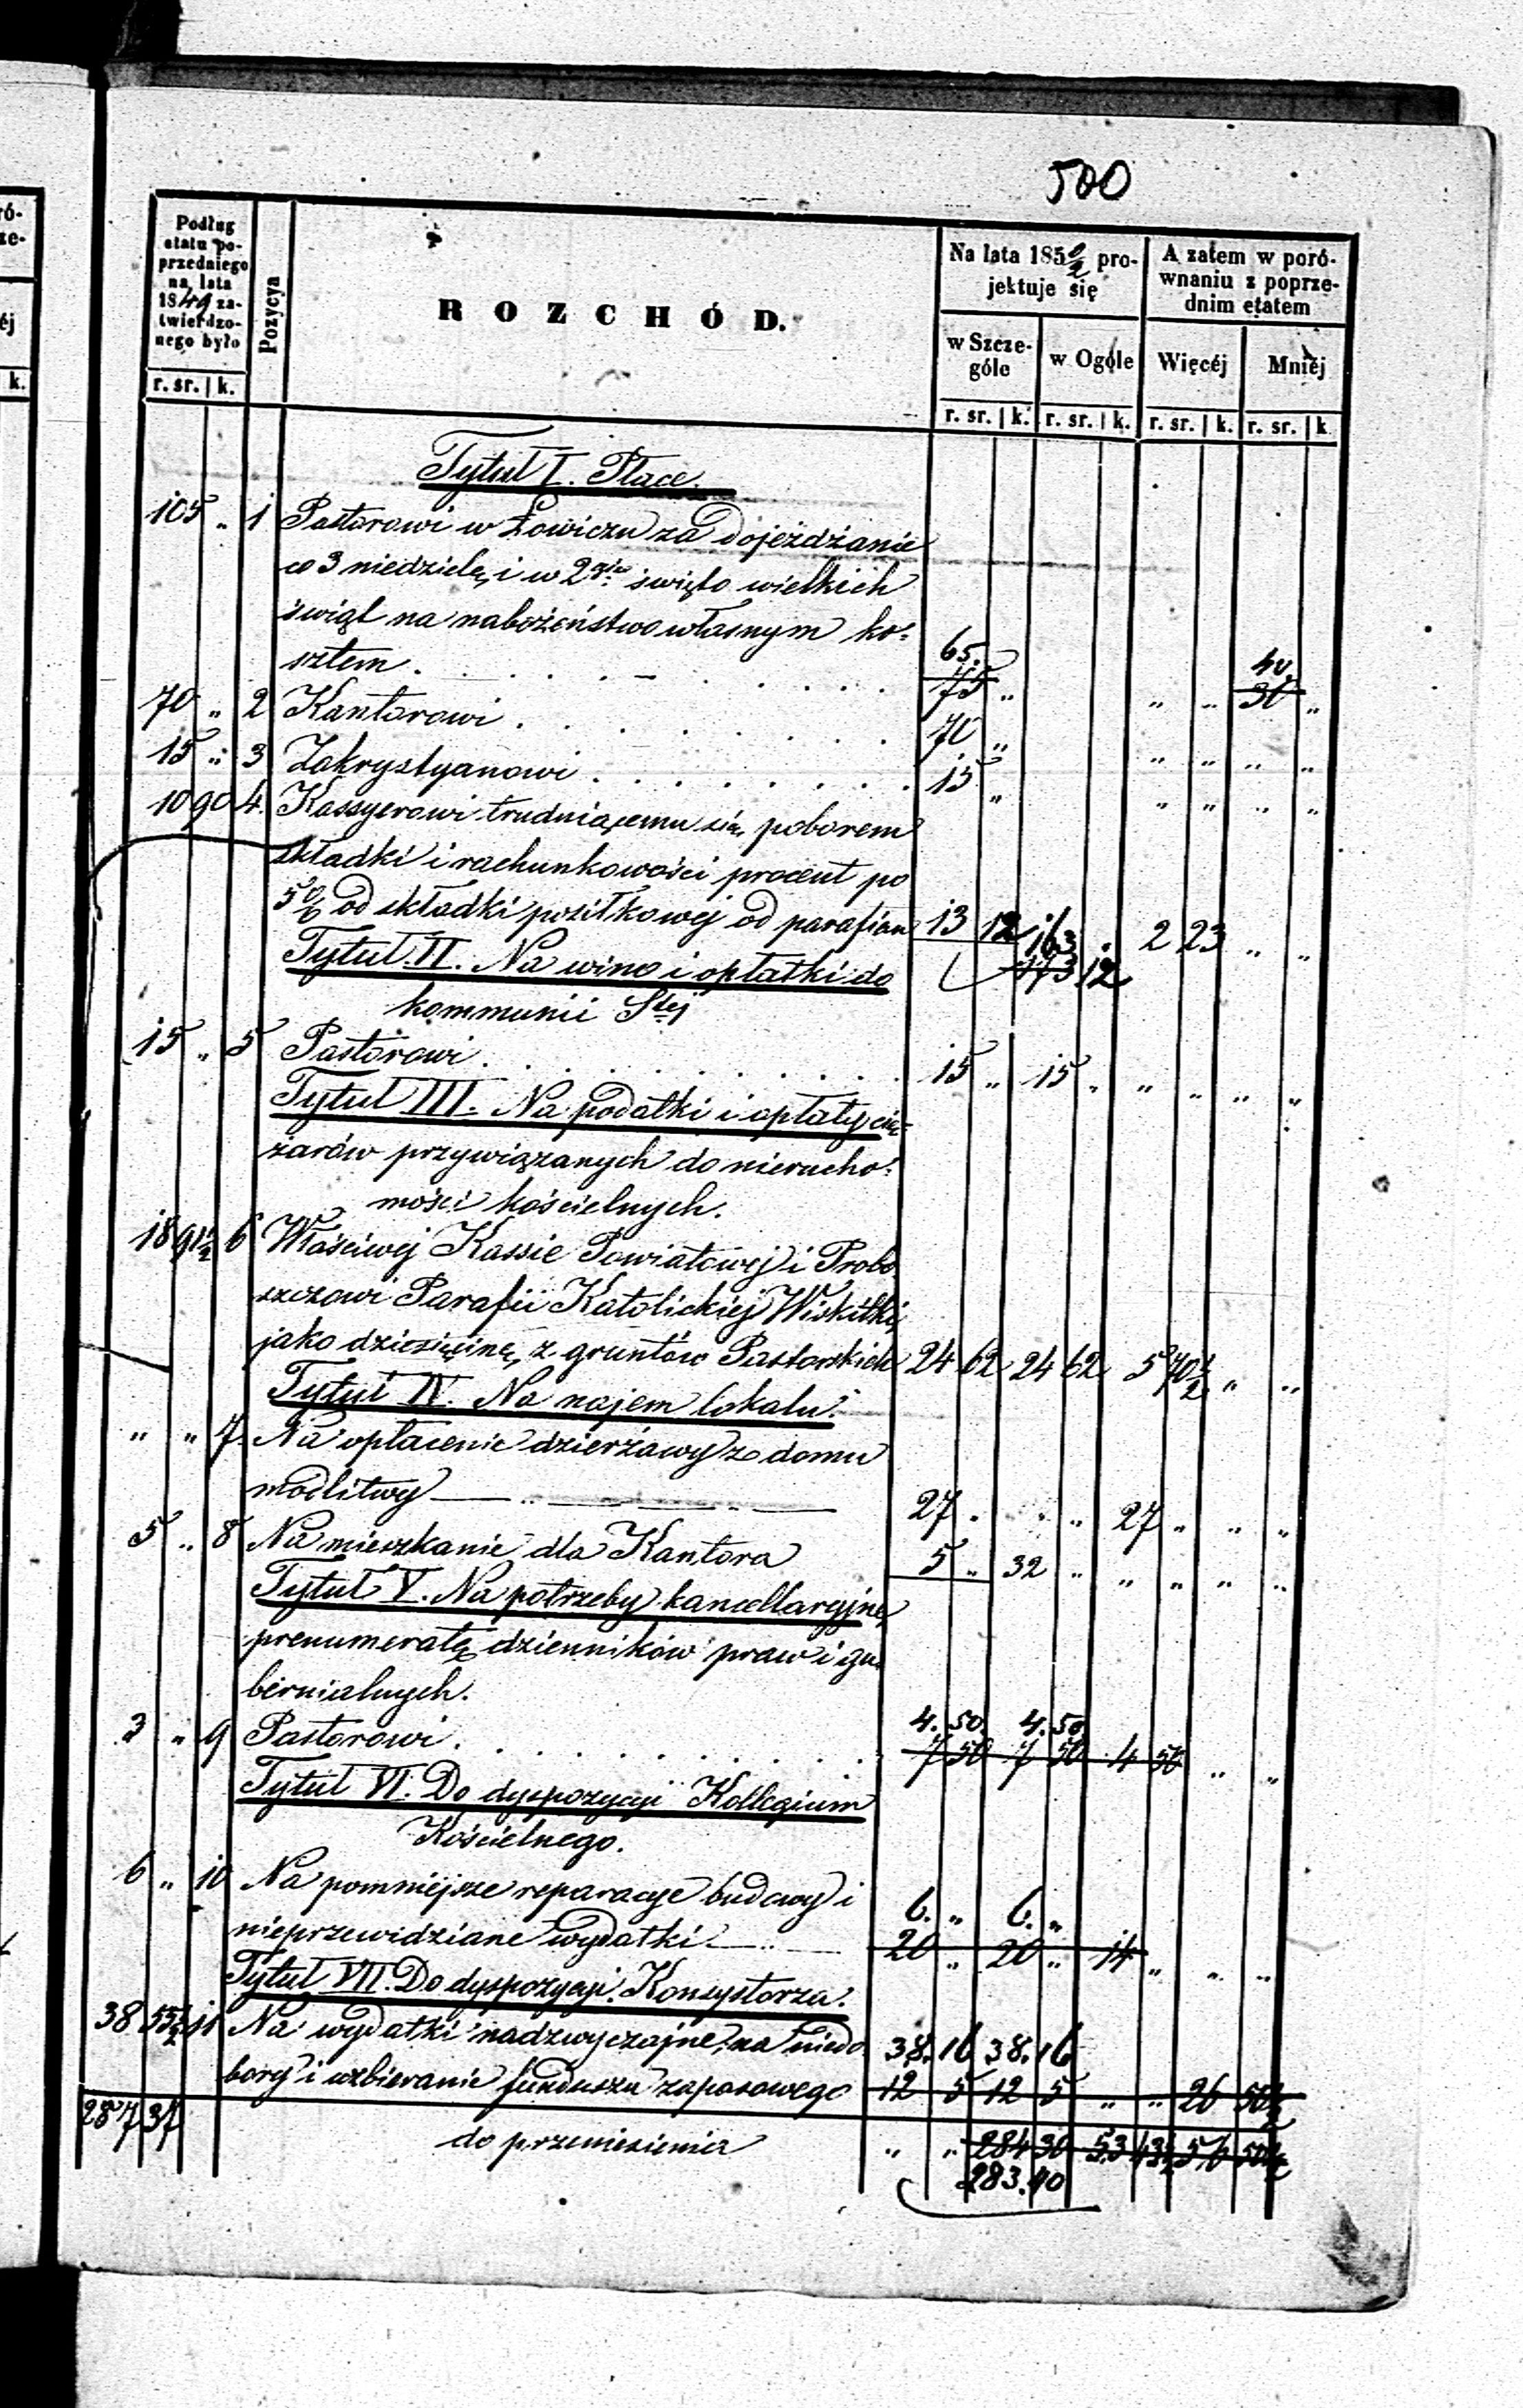 500
Podług etatu poprzedniego na lata 1849 zatwierdzonego było
Pozycya
ROZCHÓD.
Na lata 1850/2 projektuje się
A zatem w porównaniu z poprzednim etatem
w Szczególe
w Ogóle
Więcéj
Mniéj
r. sr. | k. r. sr. | k. r. sr. | k. r. sr. | k. r. sr. | k.
Tytuł I. Płace.
105 „ 1 Pastorowi w Łowiczu za dojeżdżanie
co 3 niedzielę i w 2gie święto wielkich
świąt na nabożeństwo własnym ko-
sztem . 65. 75 „ „ „ 40. 30 „
70 „ 2 Kantorowi . 70 „ „ „ „ „
15 „ 3 Zakrystyanowi . 15 „ „ „ „ „
10 90 4. Kassyerowi trudniącemu się poborem
składki i rachunkowości procent po
5% od składki posiłkowej od parafian 13 12 163 . 173 12 2 23 „ „
Tytuł II. Na wino i opłatki do
kommunii Stej
15 „ 5 Pastorowi . 15 „ 15 „ „ „ „ „
Tytuł III. Na podatki i opłaty cię-
żarów przywiązanych do nierucho-
mości kościelnych.
18 91½ 6 Właściwej Kassie Powiatowej i Probo
szczowi Parafii Katolickiej Wiskitki,
jako dziesięcinę z gruntów Pastorskich 24 62 24 62 5 70½ „ „
Tytuł IV. Na najem lokalu.
„ „ 7. Na opłacenie dzierżawy z domu
modlitwy 27 „ „ „ 27 „ „ „
5 „ 8 Na mieszkanie dla Kantora 5 „ 32 „ „ „ „ „
Tytuł V. Na potrzeby kancellaryjne,
prenumeratę dzienników praw i gu-
bernialnych.
3 „ 9 Pastorowi . 4. 50. 4. 50. 7 50 7 50 4 50 „ „
Tytuł VI. Do dyspozycyi Kollegium
Kościelnego.
6 „ 10 Na pomniejsze reparacye budowy i
nieprzewidziane wydatki. 6. „ 6. „ 20 „ 20 „ 14 „ „ „
Tytuł VII. Do dyspozycyi Konsystorza.
38 55½ 11 Na wydatki nadzwyczajne, na niedo
bory i uzbieranie funduszu zapasowego 38. 16 38. 16 12 5 12 5 „ „ 26 50½
287 37 do przeniesienia „ „ 284 30 53 43½ 56 50½
283. 40